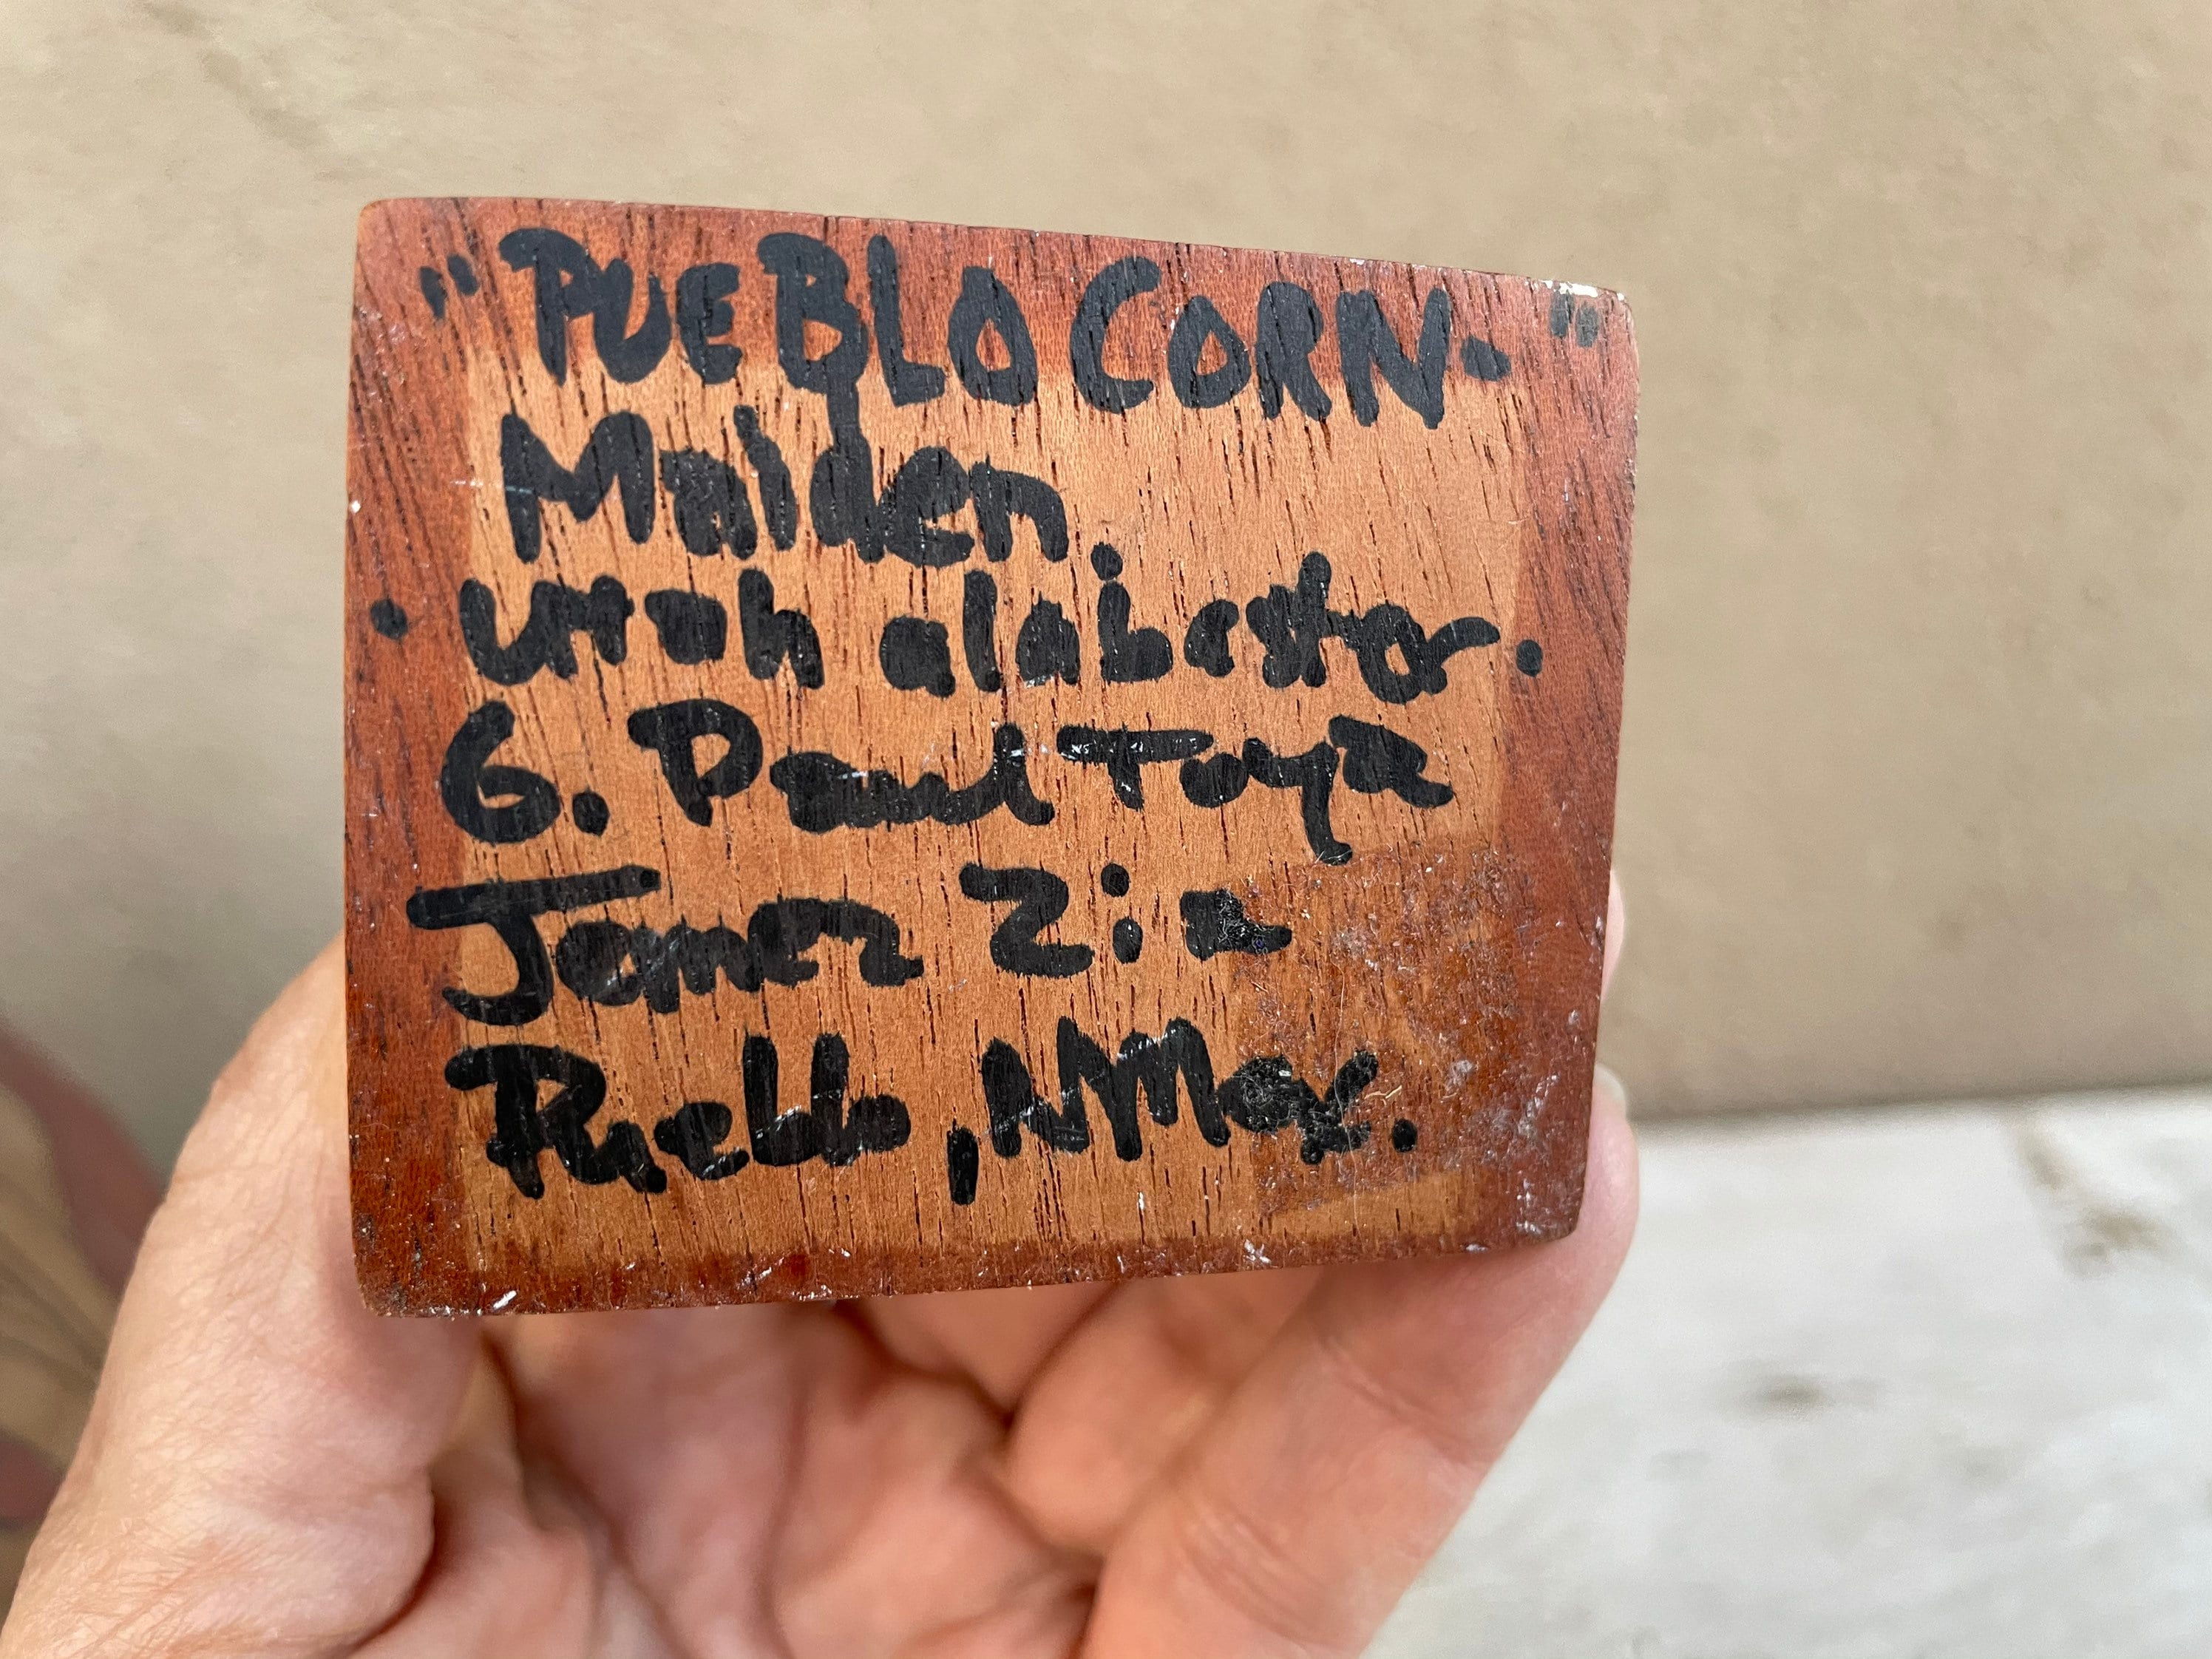 "PUEBLO CORN-"
Maiden
· Utah alabaster.
G. Paul Toya
Jemez Zia
Pueblo, NMex.